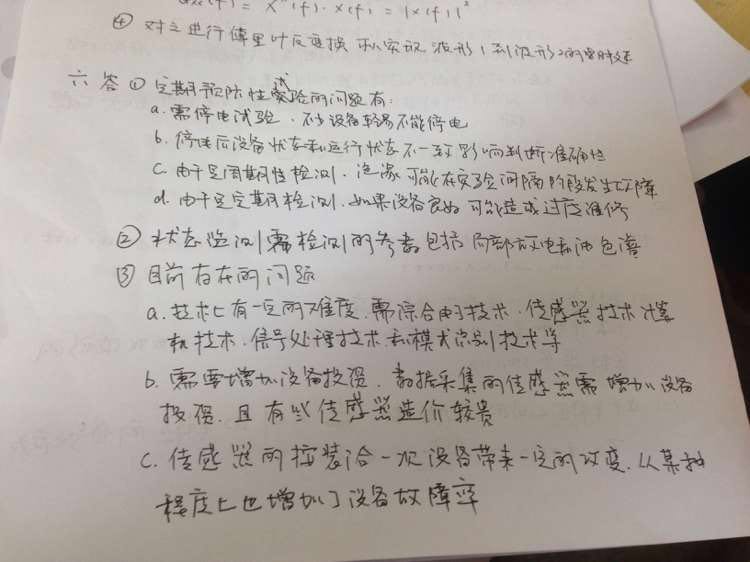 = X*(f)·X(f) = |X(f)|²
④ 对之进行傅里叶反变换 可以实现 波形1到波形2的
六 答 ① 定期预防性试验的问题有:
a. 需停电试验、不少设备轻易不能停电
b. 停电后设备状态和运行状态不一致 影响判断准确性
c. 由于是周期性检测、绝缘可能在实验间隔阶段发生故障
d. 由于是定期检测、如果设备良好可能造成过度维修
② 状态监测需检测的参数包括局部放电和油色谱
③ 目前存在的问题
a. 技术上有一定的难度、需综合电子技术、传感器技术 计算
机技术、信号处理技术和模式识别技术等
b. 需要增加设备投资、数据采集的传感器需增加设备
投资、且有些传感器造价较贵
c. 传感器的按装给一次设备带来一定的改变、从某种
程度上也增加了设备故障率